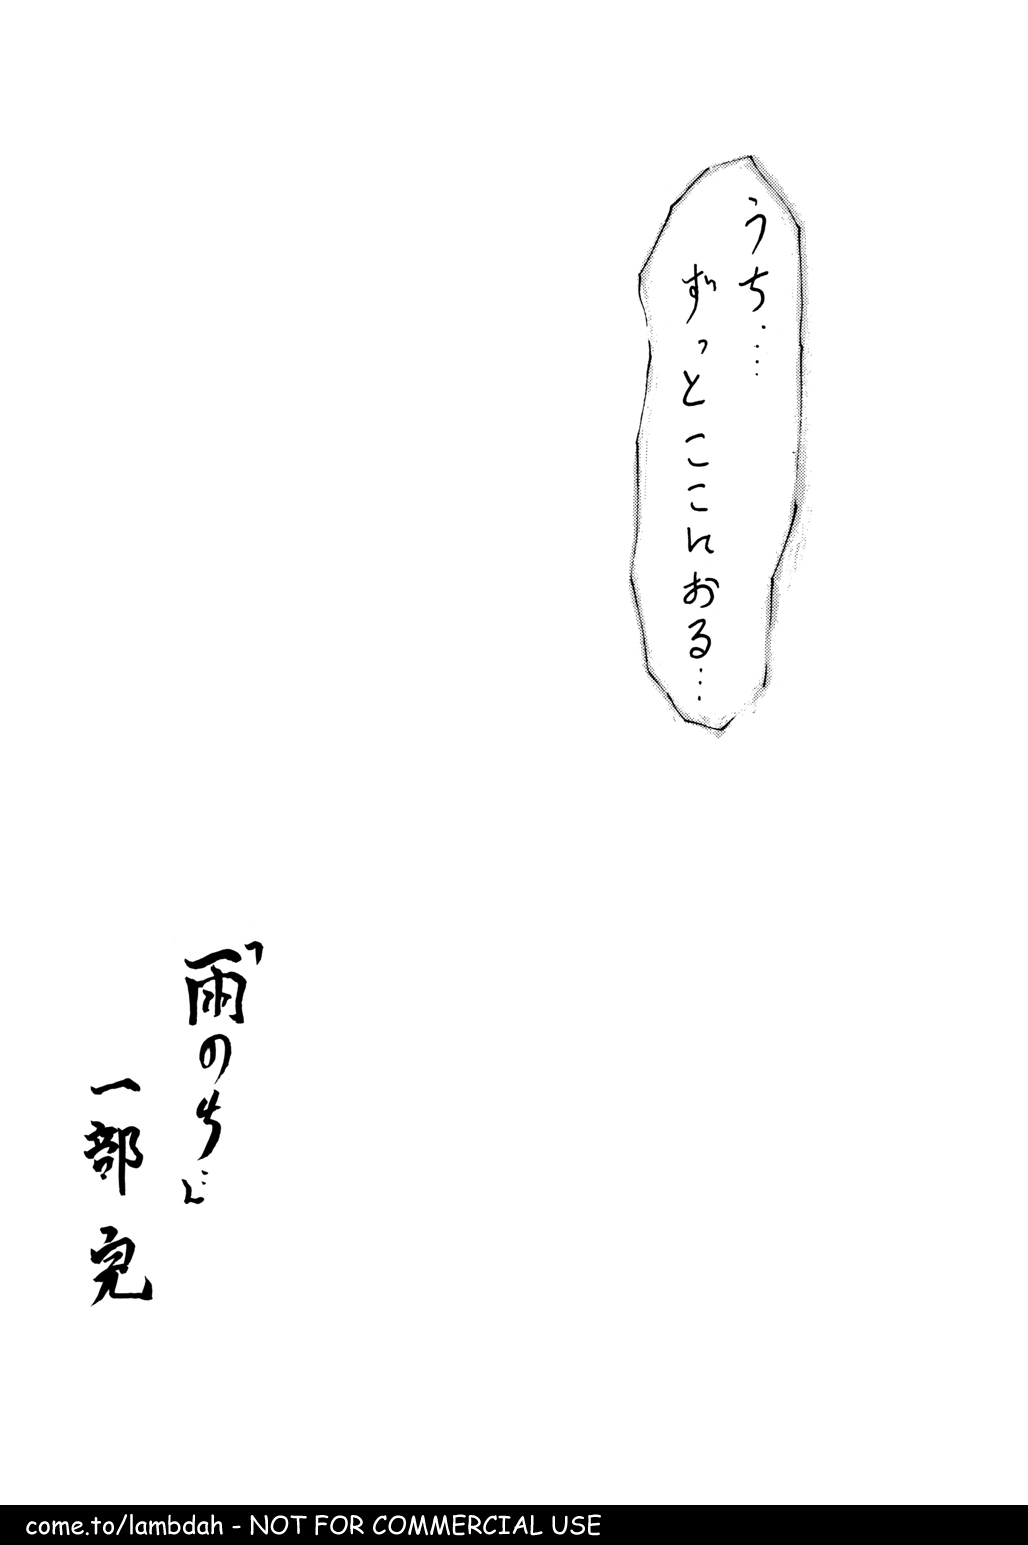 うち……
ずっとここにおる…
「雨のち…」
一部 完
come.to/lambdah - NOT FOR COMMERCIAL USE